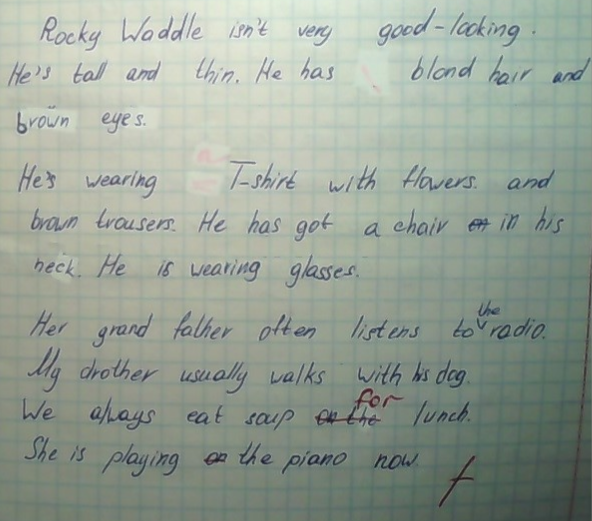 Rocky Waddle isn't very good-looking.
He's tall and thin. He has blond hair and
brown eyes.
He's wearing T-shirt with flowers. and
brown trousers. He has got a chair on in his
neck. He is wearing glasses.
Her grand father often listens to the radio.
My drother usually walks with his dog.
We always eat soup on the for lunch.
She is playing on the piano now